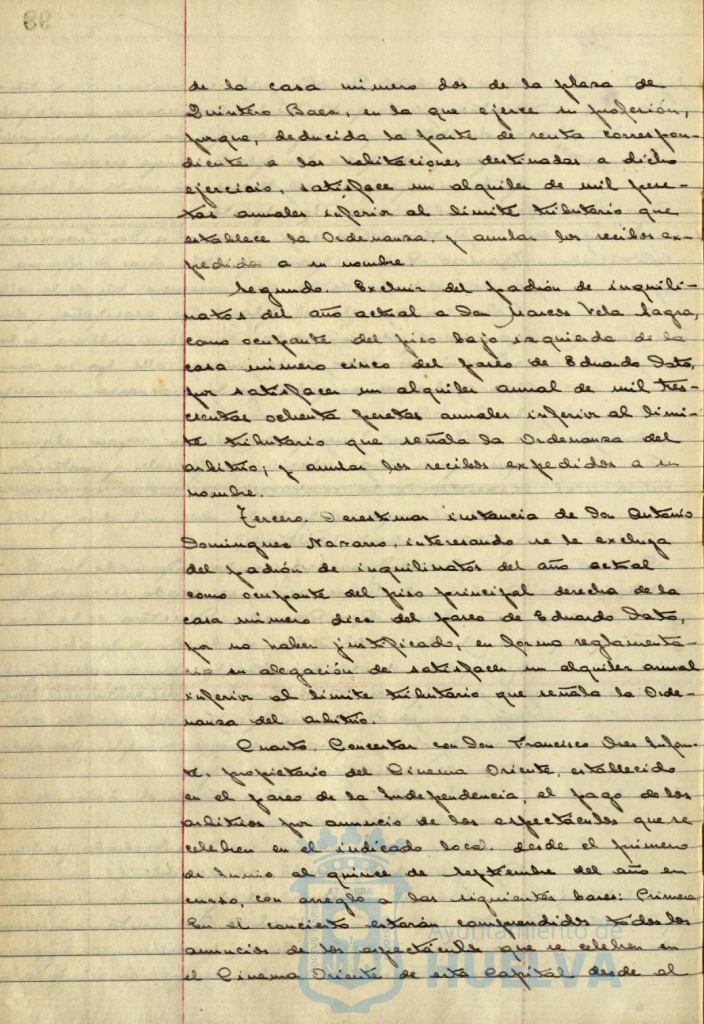 de la casa número dos de la plaza de
Quintero Baez, en la que ejerce su profesión,
porque, deducida la parte de renta correspon-
diente a las habitaciones destinadas a dicho
ejercicio, satisface un alquiler de mil pese-
tas anuales inferior al límite tributario que
establece la Ordenanza, y anular los recibos ex-
pedidos a su nombre.
Segundo. Excluir del padrón de inquili-
natos del año actual a Don Marcos Vela
como ocupante del piso bajo izquierda de la
casa número cinco del paseo de Eduardo Dato,
por satisfacer un alquiler anual de mil tres-
cientas ochenta pesetas anuales inferior al lími-
te tributario que señala la Ordenanza del
arbitrio; y anular los recibos expedidos a su
nombre.
Tercero. Desestimar instancia de Don Antonio
Dominguez Navarro, interesando se le excluya
del padrón de inquilinatos del año actual
como ocupante del piso principal derecha de la
casa número diez del paseo de Eduardo Dato,
por no haber justificado, en forma reglamenta-
ria su alegación de satisfacer un alquiler anual
inferior al límite tributario que señala la Orde-
nanza del arbitrio.
Cuarto. Concertar con Don Francisco
propietario del Cinema Oriente, establecido
en el paseo de la Independencia, el pago de los
arbitrios por anuncio de los espectáculos que se
celebren en el indicado local desde el primero
de Junio al quince de Septiembre del año en
curso, con arreglo a las siguientes bases: Primera
En el concierto estarán comprendidos todos los
anuncios de los espectáculos que se celebren en
el Cinema Oriente de esta Capital desde el
Ayuntamiento de
HUELVA